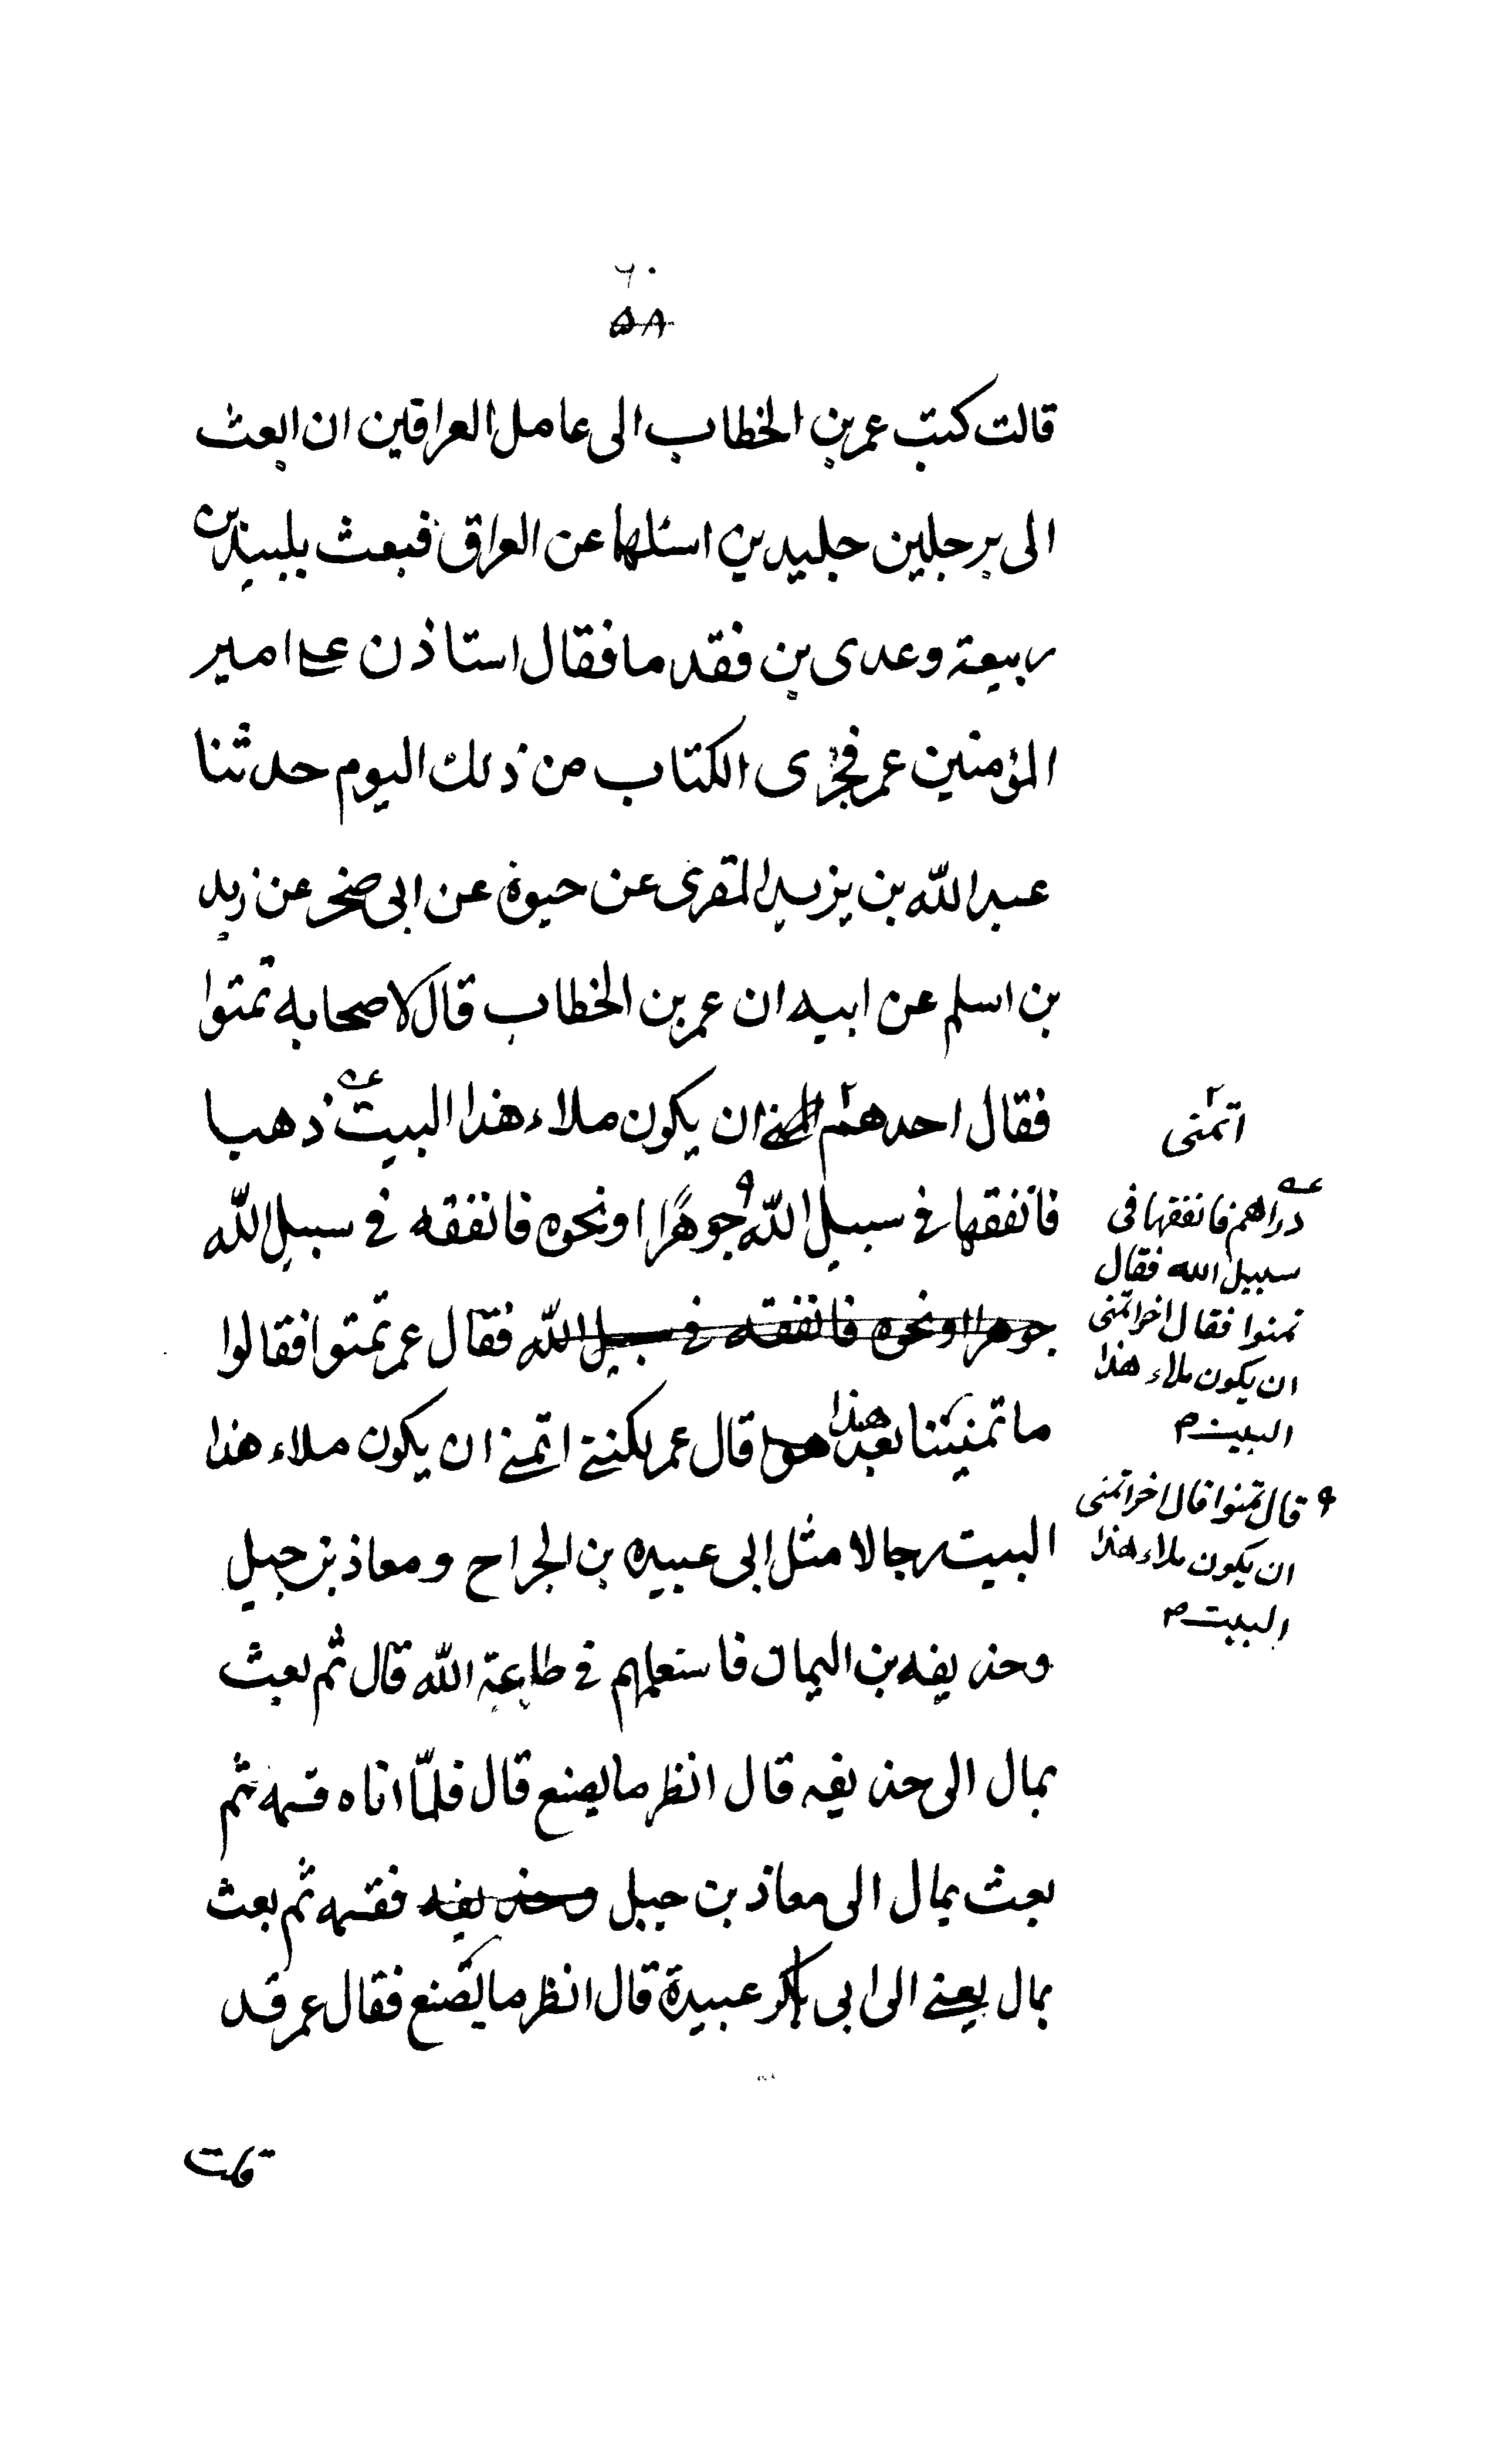 ٦٠
٥٨
قالت كتب عمر بن الخطاب الى عامل العراقين ان ابعث
الى برجلين جليدين اسئلهما عن العراق فبعث بلبيد بن
ربيعة وعدى بن فقد ما فقال استاذن على امير
المؤمنين عمر فجرى الكتاب من ذلك اليوم حدثنا
عبد الله بن يزيد المقرى عن حيوة عن ابى صخر عن زيد
بن اسلم عن ابيه ان عمر بن الخطاب قال لاصحابه تمنوا
فقال احدهم ان يكون ملاء هذا البيت ذهبا
فانفقها في سبيل الله جوهرا اونحوه فانفقه في سبيل الله
جوهرا اونحوه فانفقه في سبيل الله فقال عمر تمنوا فقالوا
ما تمنيتنا بعد هذا قال عمر لكنني اتمنى ان يكون ملاء هذا
البيت رجالا مثل ابى عبيده بن الجراح ومعاذ بن جبل
وحذيفه بن اليمان فاستعملهم في طاعة الله قال ثم بعث
بمال الى حذيفه قال انظر ما يصنع قال فلمّا اتاه قسمه ثم
بعث بمال الى معاذ بن جبل وحذيفه فقسمه ثم بعث
بمال يعنى الى ابى بكر عبيدة قال انظر ما يصنع فقال عمر قد
قلت
اتمنى
دراهم فانفقها فى
سبيل الله فقال
تمنوا فقال اخر اتمنى
ان يكون ملاء هذا
البيت
٩ قال تمنوا قال اخر اتمنى
ان يكون ملاء هذا
البيت